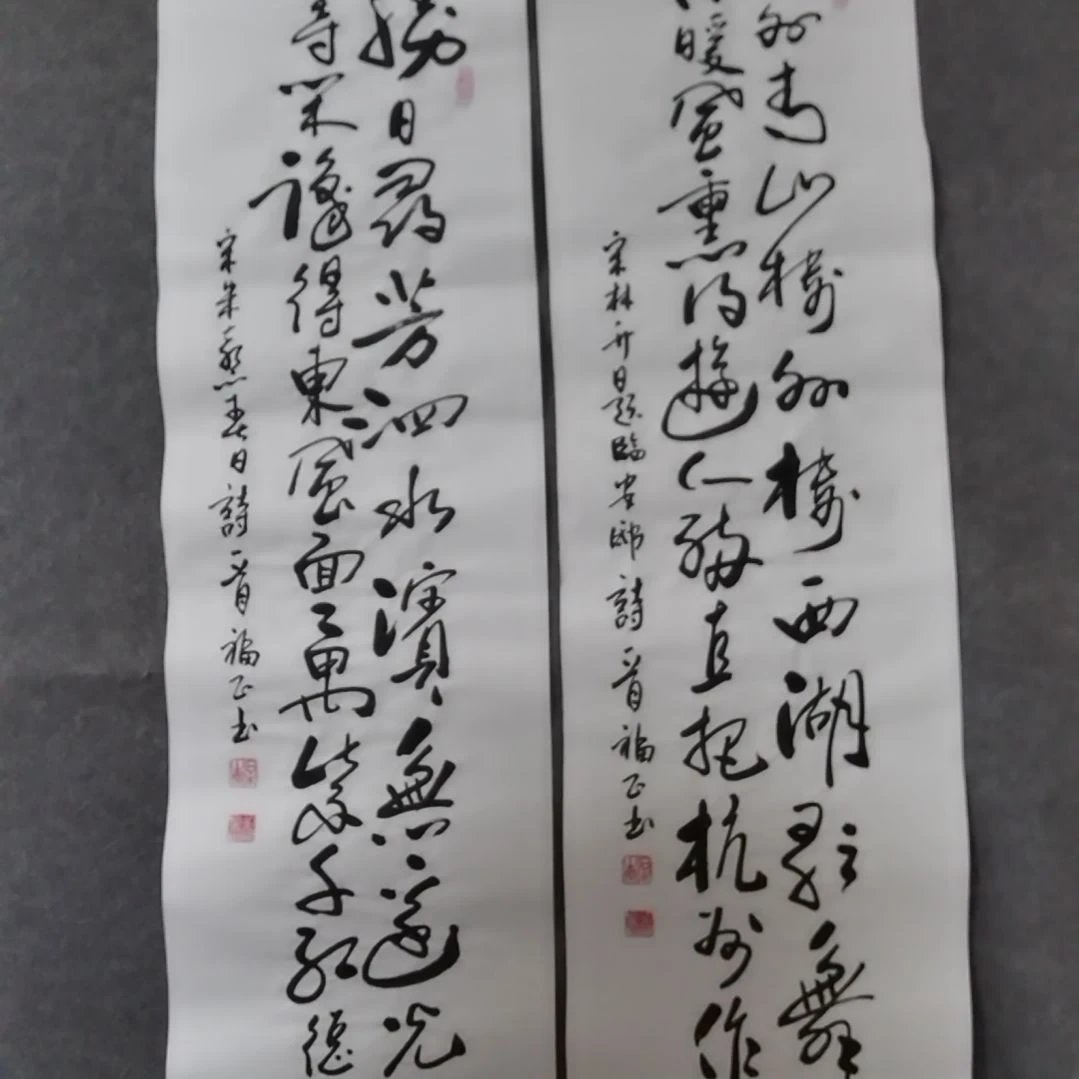 外青山樓外樓西湖歌舞
暖風熏得遊人醉直把杭州作
宋林升日題臨安邸詩一首福正书
勝日尋芳泗水濱無邊光
等閑識得東風面萬紫千紅總
宋朱熹春日詩一首福正书